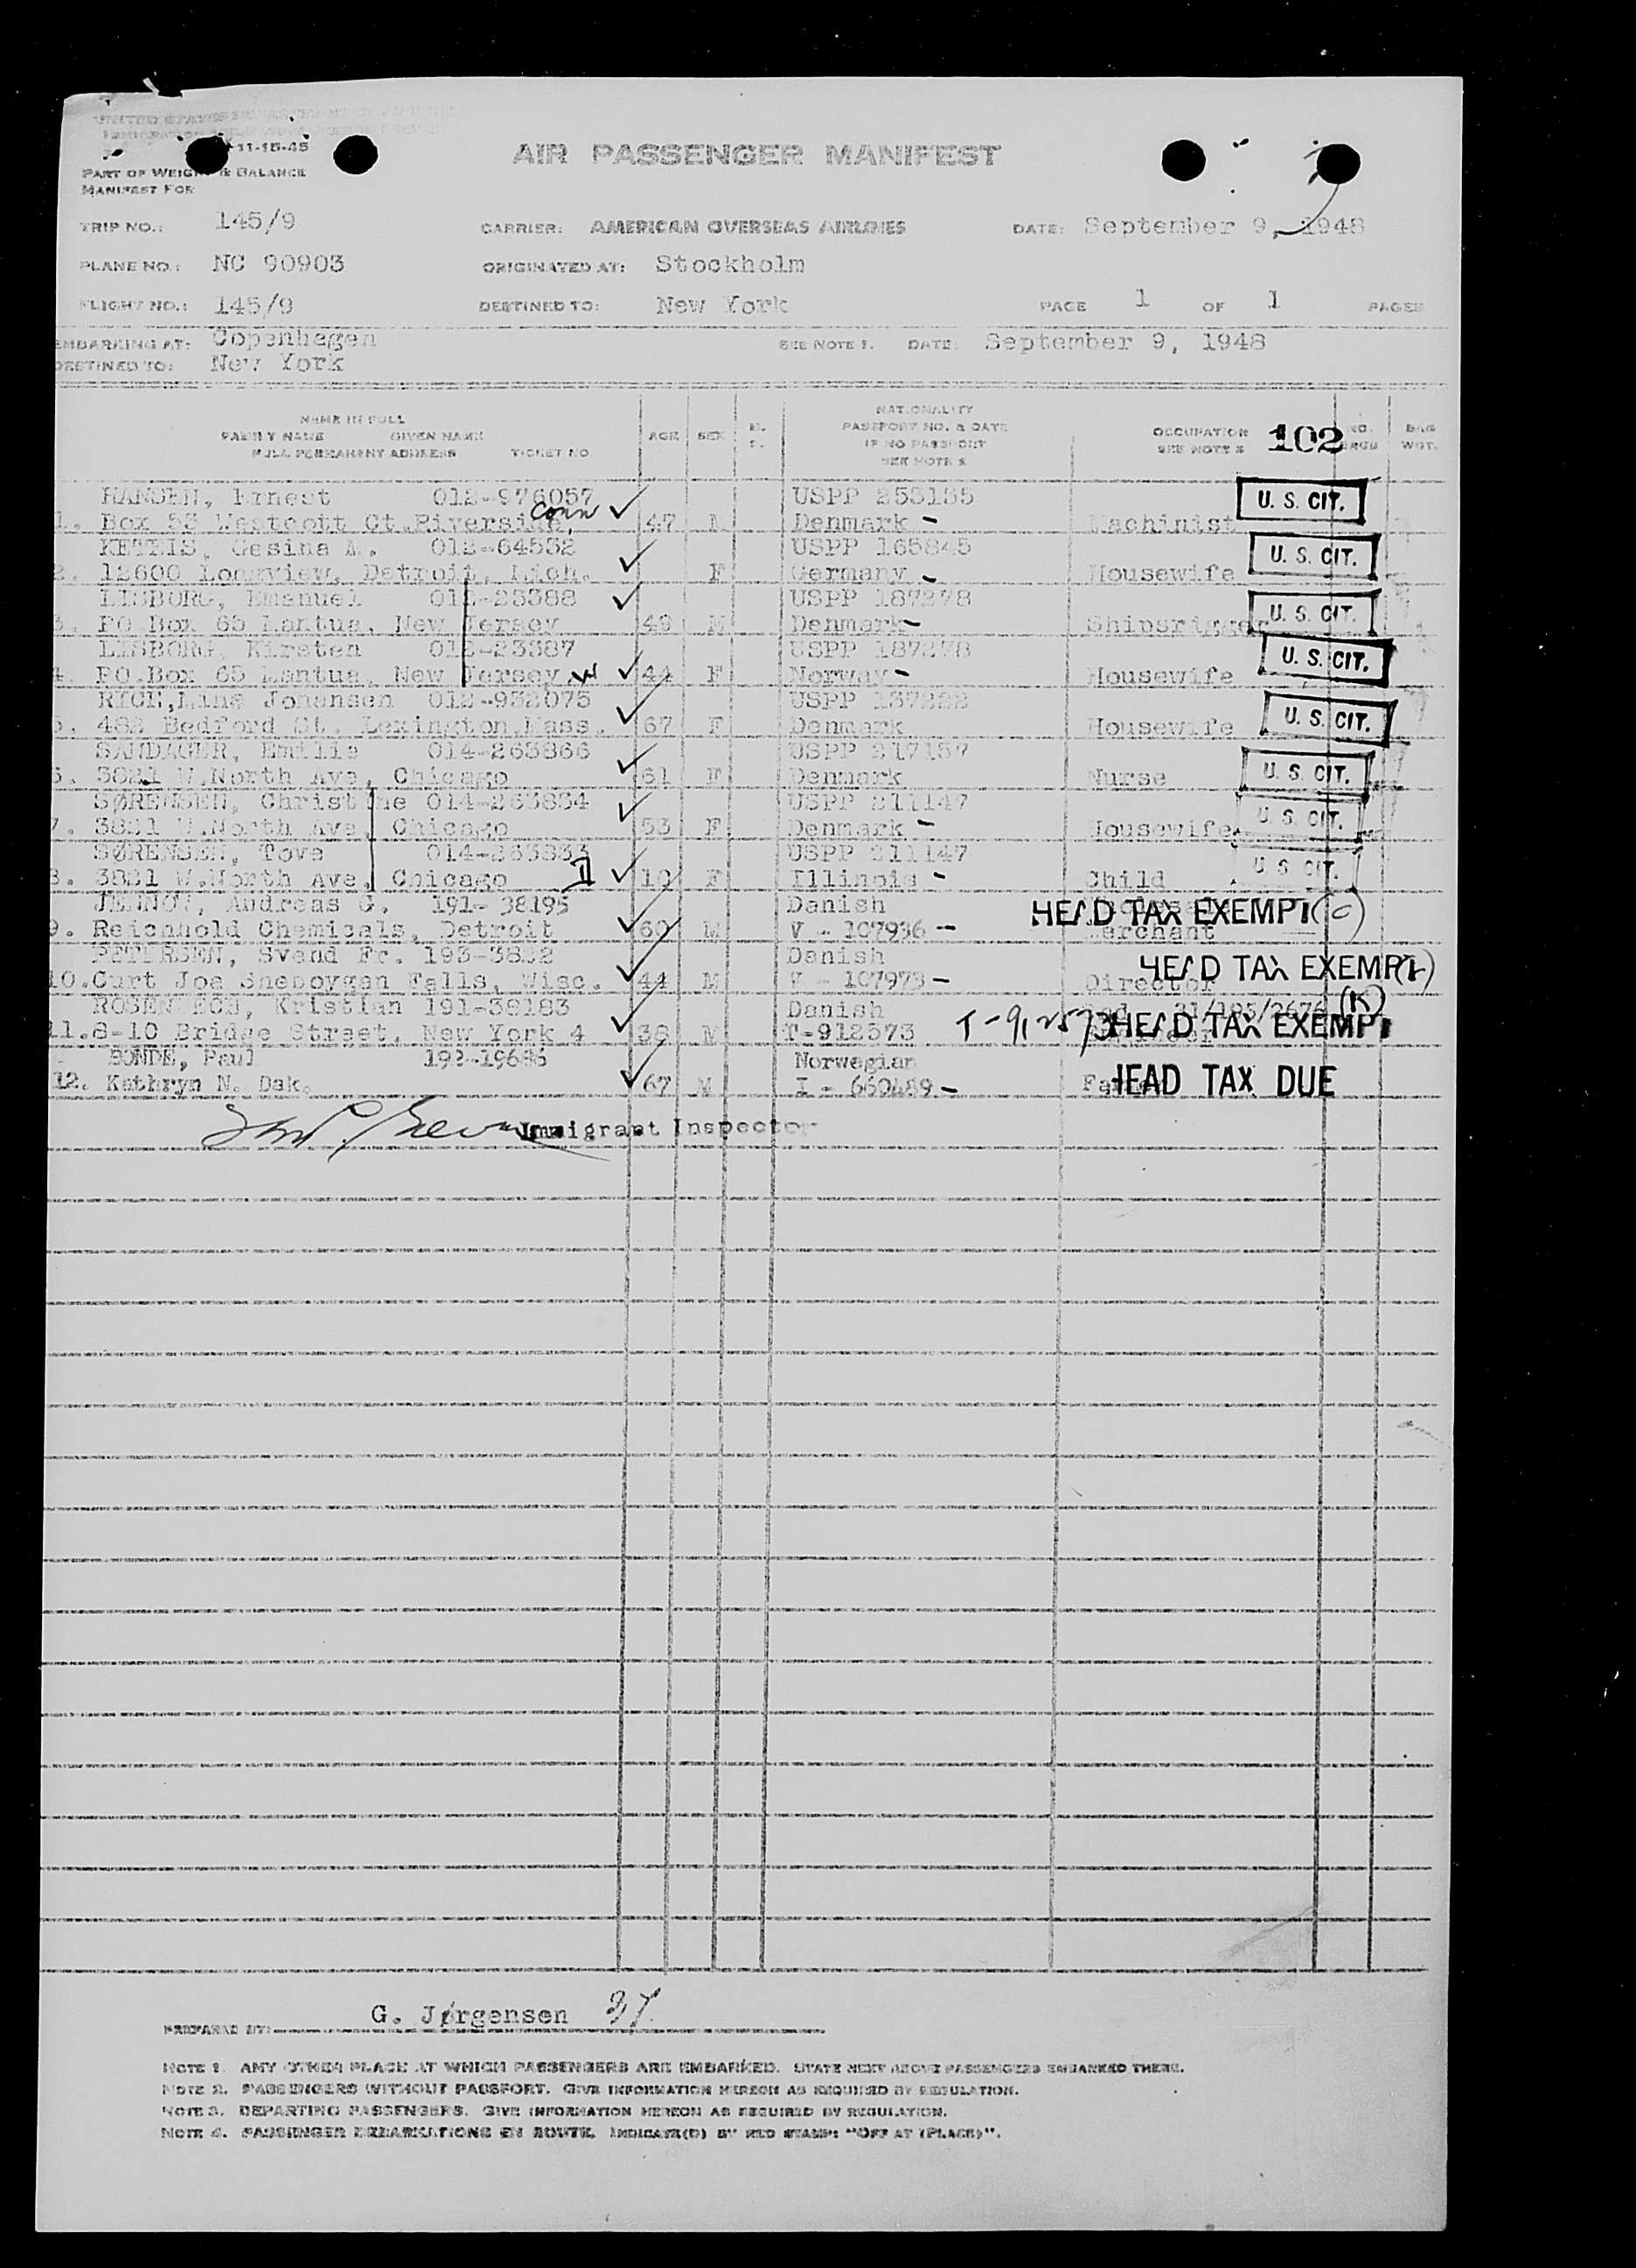 UNITED STATES
11-15-45
AIR PASSENGER MANIFEST
PART OF WEIGHT & BALANCE
MANIFEST FOR
TRIP NO.: 145/9 CARRIER: AMERICAN OVERSEAS AIRLINES DATE: September 9, 1948
PLANE NO.: NC 90903 ORIGINATED AT: Stockholm
FLIGHT NO.: 145/9 DESTINED TO: New York PAGE 1 OF 1 PAGES
EMBARKING AT: Copenhagen SEE NOTE 1. DATE: September 9, 1948
DESTINED TO: New York
NAME IN FULL
FAMILY NAME GIVEN NAME
FULL PERMANENT ADDRESS TICKET NO.
AGE SEX
NATIONALITY
PASSPORT NO. & DATE
IF NO PASSPORT
SEE NOTE 2
OCCUPATION
SEE NOTE 3 102 NO. BAG
WGT.
HANSEN, Ernest 012-976057 USPP 255155 U. S. CIT.
1. Box 53 Westcott Ct. Riverside, Conn 47 M Denmark - Machinist
Gesina A. 012-64532 USPP 165845 U. S. CIT.
2. 12600 Longview, Detroit, Mich. F Germany - Housewife
LISBORG, Emanuel 012-23388 USPP 187278 U. S. CIT.
3. PO Box 65 Lantus, New Jersey 49 M Denmark - Shipsrigger
LISBORG, Kirsten 012-23387 USPP 187278 U. S. CIT.
4. PO.Box 65 Lantus, New Jersey 44 F Norway - Housewife
Johansen 012-932075 USPP 137222 U. S. CIT.
5. 482 Bedford St. Lexington, Mass. 67 F Denmark Housewife
SANDAGER, Emilie 014-263866 USPP 217157 U. S. CIT.
6. 3821 W.North Ave, Chicago 61 F Denmark Nurse
SØRENSEN, Christine 014-263834 USPP 211147 U. S. CIT.
7. 3821 W.North Ave, Chicago 53 F Denmark - Housewife
SØRENSEN, Tove 014-263833 USPP 211147 U S CIT.
8. 3821 W.North Ave, Chicago II 10 F Illinois - Child
Andreas G. 191- 38195 Danish HEAD TAX EXEMPT (C)
9. Reichhold Chemicals, Detroit 60 M V - 107936 - Merchant
PETERSEN, Svend Fr. 193-3822 Danish HEAD TAX EXEMPT
10. Curt Joa Sheboygan Falls, Wisc. 44 M V - 107973 - Director
Kristian 191-38183 Danish (K)
11. 8-10 Bridge Street, New York 4 38 M T-912573 T-912573 HEAD TAX EXEMPT
BONDE, Paul 192-19686 Norwegian
12. Kathryn N. Dak. 67 M I - 660489 - HEAD TAX DUE
Immigrant Inspector
PREPARED BY: G. Jørgensen 37
NOTE 1. ANY OTHER PLACE AT WHICH PASSENGERS ARE EMBARKED. STATE NEXT ABOVE PASSENGERS EMBARKED THERE.
NOTE 2. PASSENGERS WITHOUT PASSPORT. GIVE INFORMATION HEREON AS REQUIRED BY REGULATION.
NOTE 3. DEPARTING PASSENGERS. GIVE INFORMATION HEREON AS REQUIRED BY REGULATION.
NOTE 4. PASSENGER DEBARKATIONS EN ROUTE. INDICATE(D) BY RED STAMP: "OFF AT (PLACE)".